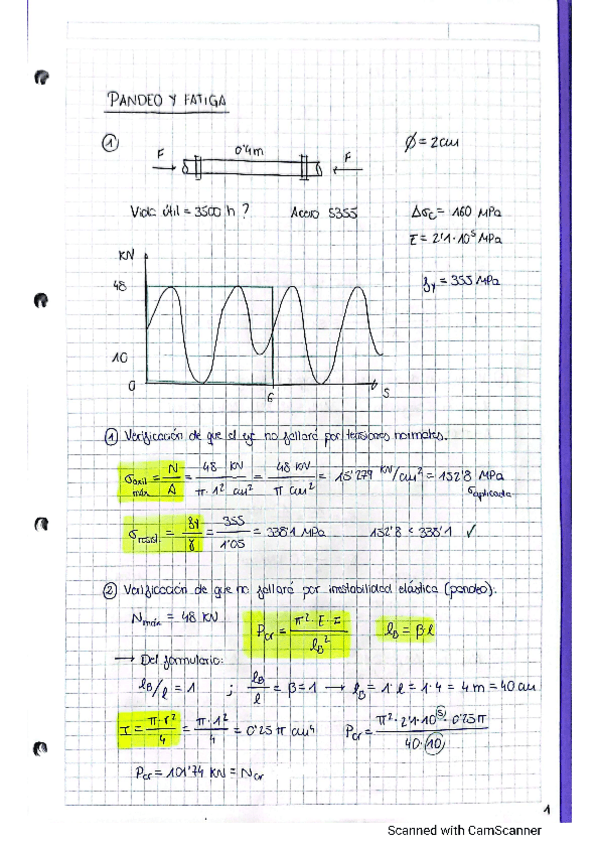 PANDEO Y FATIGA
①
F 0'4m F
Ø = 2cm
Vida útil = 3500 h ? Acero S355
Δσc = 160 MPa
E = 2'1·10⁵ MPa
fy = 355 MPa
KN
48
10
0
6
S
① Verificación de que el eje no fallará por tensiones normales.
σaxil máx = N/A = 48 KN / π·1² cm² = 48 KN / π cm² = 15'279 KN/cm² = 152'8 MPa
σaplicada
σresist = fy/γ = 355/1'05 = 338'1 MPa 152'8 < 338'1 ✓
② Verificación de que no fallará por inestabilidad elástica (pandeo).
Nmáx = 48 KN Pcr = π²·E·I / lB² lB = β l
→ Del formulario:
lB/l = 1 ; lB/l = β = 1 → lB = 1·l = 1·4 = 4m = 40 cm
I = π·r²/4 = π·1²/4 = 0'25 π cm⁴ Pcr = π²·2'1·10⁵·0'25π / 40·10
Pcr = 101'74 KN = Ncr
1
Scanned with CamScanner